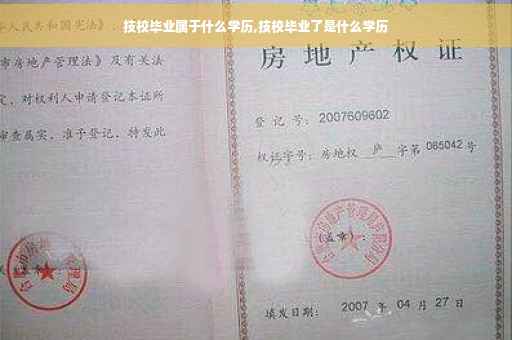 技校毕业属于什么学历,技校毕业了是什么学历
华人民共和国宪法》、
市房地产管理法》及有关法
定，对权利人申请登记本证所
审查属实，准予登记，特发此
房地产权证
登记号：2007609602
权证字号：房地权 庐 字第 065042 号
(盖章)：
填发日期：2007 年 04 月 27 日